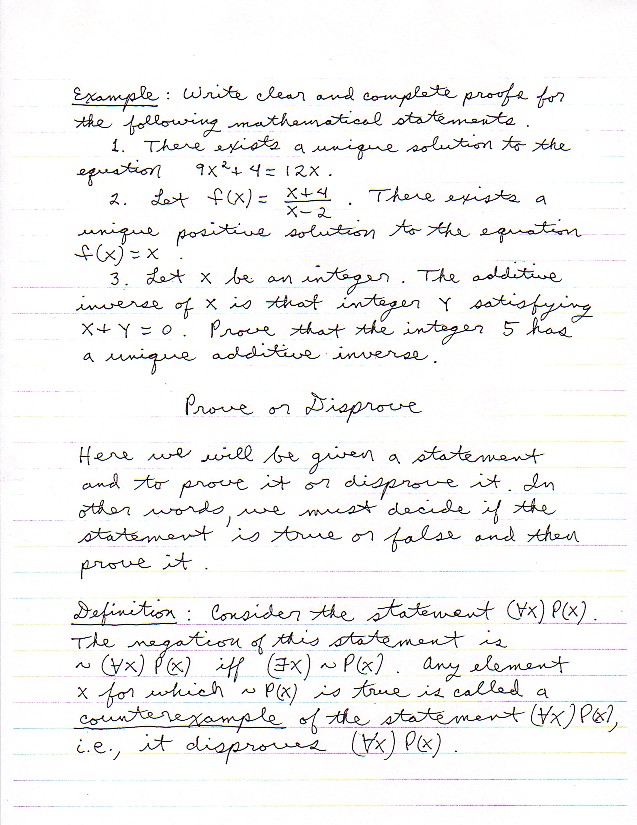 Example : Write clear and complete proofs for
the following mathematical statements .
1. There exists a unique solution to the
equation 9x²+ 4 = 12x .
2. Let f(x) = (x+4)/(x-2) . There exists a
unique positive solution to the equation
f(x) = x .
3. Let x be an integer . The additive
inverse of x is that integer y satisfying
x + y = 0 . Prove that the integer 5 has
a unique additive inverse .
Prove or Disprove
Here we will be given a statement
and to prove it or disprove it . In
other words, we must decide if the
statement is true or false and then
prove it .
Definition : Consider the statement (∀x) P(x) .
The negation of this statement is
~ (∀x) P(x) iff (∃x) ~ P(x) . Any element
x for which ~ P(x) is true is called a
counterexample of the statement (∀x) P(x),
i.e., it disproves (∀x) P(x) .